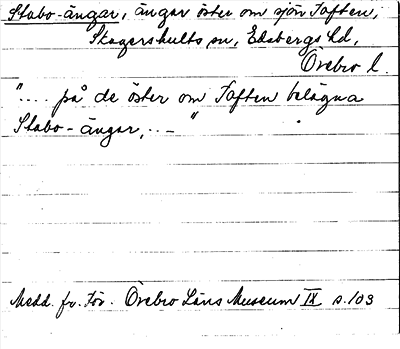 Stabo-ängar, ängar öster om sjön Toften,
Skagershults sn, Edsbergs hd,
Örebro l.
".... på de öster om Toften belägna
Stabo-ängar,..–"
Medd. fr. För. Örebro Läns Museum IX s. 103